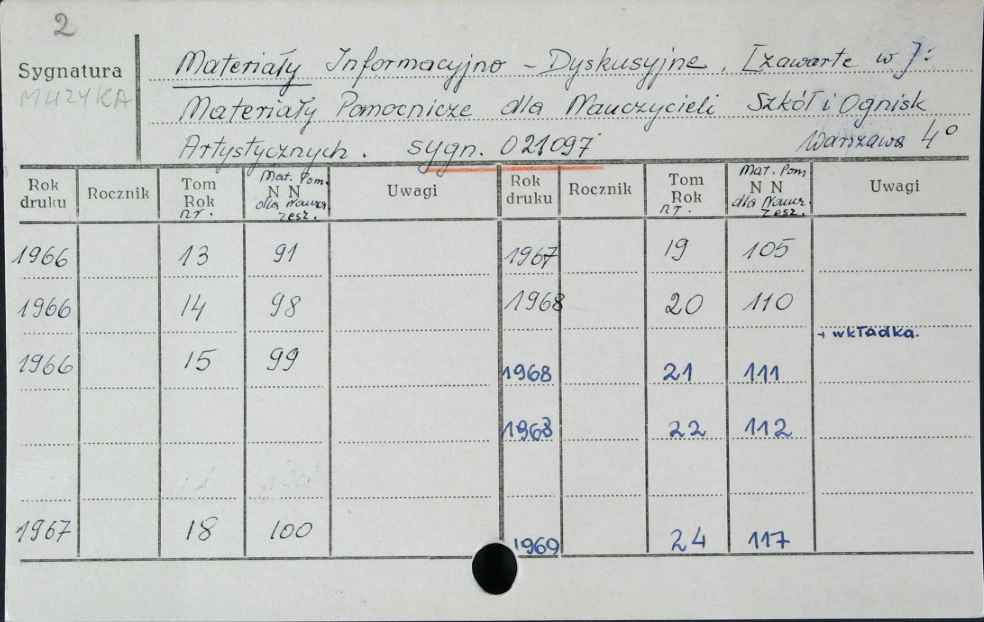 2
Sygnatura
MUZYKA
Materiały Informacyjno - Dyskusyjne. [zawarte w]:
Materiały Pomocnicze dla Nauczycieli Szkół i Ognisk
Artystycznych. sygn. 021097 Warszawa 4°
Rok druku Rocznik Tom Rok nr. Mat. Pom. N N dla Naucz. zesz. Uwagi Rok druku Rocznik Tom Rok nr. Mat. Pom N N dla Naucz. zesz. Uwagi
1966 13 91 1967 19 105
1966 14 98 1968 20 110
+ wkładka.
1966 15 99 1968 21 111
1968 22 112
1967 18 100 1969 24 117